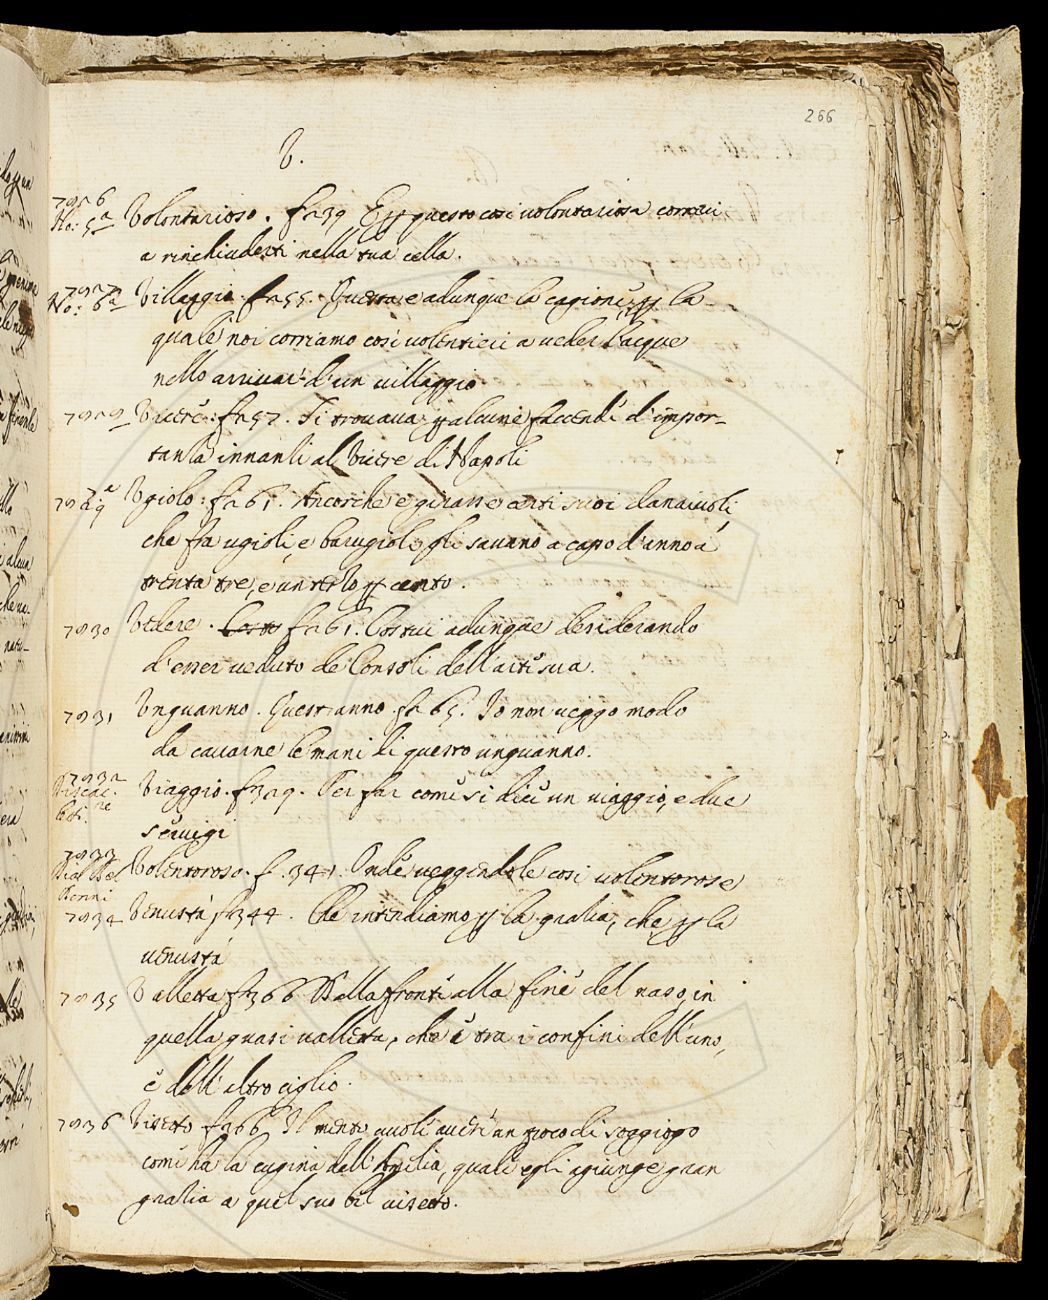 266
V.
7926
No: 5a Volontarioso. fa39 E per questo così volontariosa corraii
a rinchiuderti nella tua cella.
7927
No: 6a Villaggio. fa55. Questa e adunque la cagione, per la
quale noi corriamo così volentieri a veder l'acque
nello arrivar d'un villaggio
Vicerè. fa57. Si trovava per alcune faccende d'impor-
tanza innanzi al Vicere di Napoli
Vgiolo: fa61. Ancorche e girasse certi suoi danaiuoli,
che fra ugioli, e barugioli gli savano a capo d'anno á
trenta tre, e un terzo per cento.
7930 Vedere. fa61. Costui adunque desiderando
d'esser veduto de Consoli dell'arte sua.
7931 Vnguanno. Quest'anno. fa65. Io non veggo modo
da cavarne le mani di questo unguanno.
7932
Viaggio. fa29. Per far come si dice un viaggio, e due
servigi
7933
Dial. Del
Firenz. Volentoroso. f. 341. Onde veggendole così volentorose
7934 Venustà fa344. Che intendiamo per la grazia, che per la
venustá
7935 Valletta fa366 Dalla fronte alla fine del naso, in
quella quasi valletta, che è tra i confini dell'uno,
e dell'altro ciglio.
7936 Visetto fa366. Il mento vuol avere un poco di soggiogo
come ha la cugina dell'Amelia, quale egli agiunge gran
grazia a quel suo bel visetto.